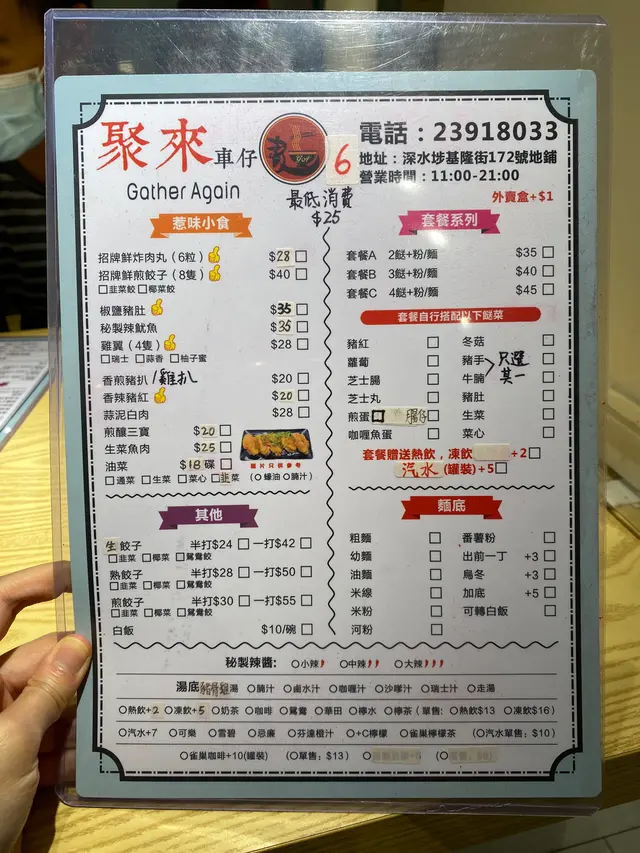 聚來車仔
Gather Again
6
最低消費
$25
電話：23918033
地址：深水埗基隆街172號地鋪
營業時間：11:00-21:00
外賣盒+$1
惹味小食
招牌鮮炸肉丸（6粒） $28
招牌鮮煎餃子（8隻） $40
韭菜餃 椰菜餃
椒鹽豬肚 $35
秘製辣魷魚 $35
雞翼（4隻） $28
瑞士 蒜香 柚子蜜
香煎豬扒/雞扒 $20
香辣豬紅 $20
蒜泥白肉 $28
煎釀三寶 $20
生菜魚肉 $25
油菜 $18碟
通菜 生菜 菜心 韭菜 （蠔油 腩汁）
圖片只供參考
其他
生餃子 半打$24 一打$42
韭菜 椰菜 鴛鴦餃
熟餃子 半打$28 一打$50
韭菜 椰菜 鴛鴦餃
煎餃子 半打$30 一打$55
韭菜 椰菜 鴛鴦餃
白飯 $10/碗
套餐系列
套餐A 2餸+粉/麵 $35
套餐B 3餸+粉/麵 $40
套餐C 4餸+粉/麵 $45
套餐自行搭配以下餸菜
豬紅 冬菇
蘿蔔 豬手
芝士腸 牛腩
只選
其一
芝士丸 豬肚
煎蛋 生菜
咖喱魚蛋 菜心
套餐贈送熱飲，凍飲 +2
汽水(罐裝)+5
麵底
粗麵 番薯粉
幼麵 出前一丁 +3
油麵 烏冬 +3
米線 加底 +5
米粉 可轉白飯
河粉
秘製辣醬： 小辣 中辣 大辣
湯底 湯 腩汁 鹵水汁 咖喱汁 沙嗲汁 瑞士汁 走湯
熱飲+2 凍飲+5 奶茶 咖啡 鴛鴦 華田 檸水 檸茶（單售：熱飲$13 凍飲$16）
汽水+7 可樂 雪碧 忌廉 芬達橙汁 +C檸檬 雀巢檸檬茶 （汽水單售：$10）
雀巢咖啡+10(罐裝) （單售：$13）